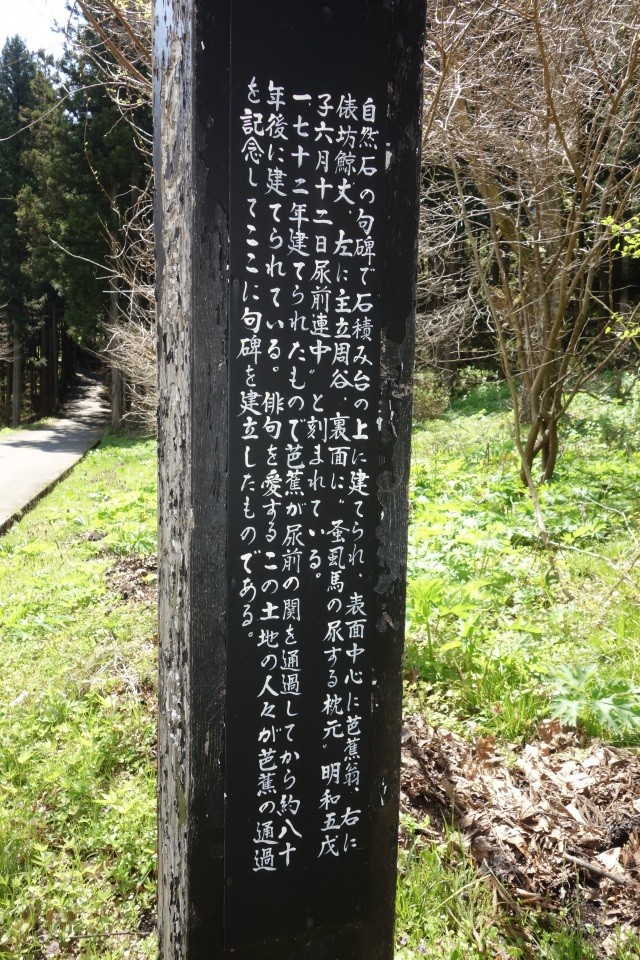 自然石の句碑で石積み台の上に建てられ、表面中心に芭蕉翁、右に
俵坊鯨丈、左に主立周谷、裏面に〝蚤虱馬の尿する枕元〟明和五戊
子六月十二日尿前連中〟と刻まれている。
一七十二年建てられたもので芭蕉が尿前の関を通過してから約八十
年後に建てられている。俳句を愛するこの土地の人々が芭蕉の通過
を記念してここに句碑を建立したものである。